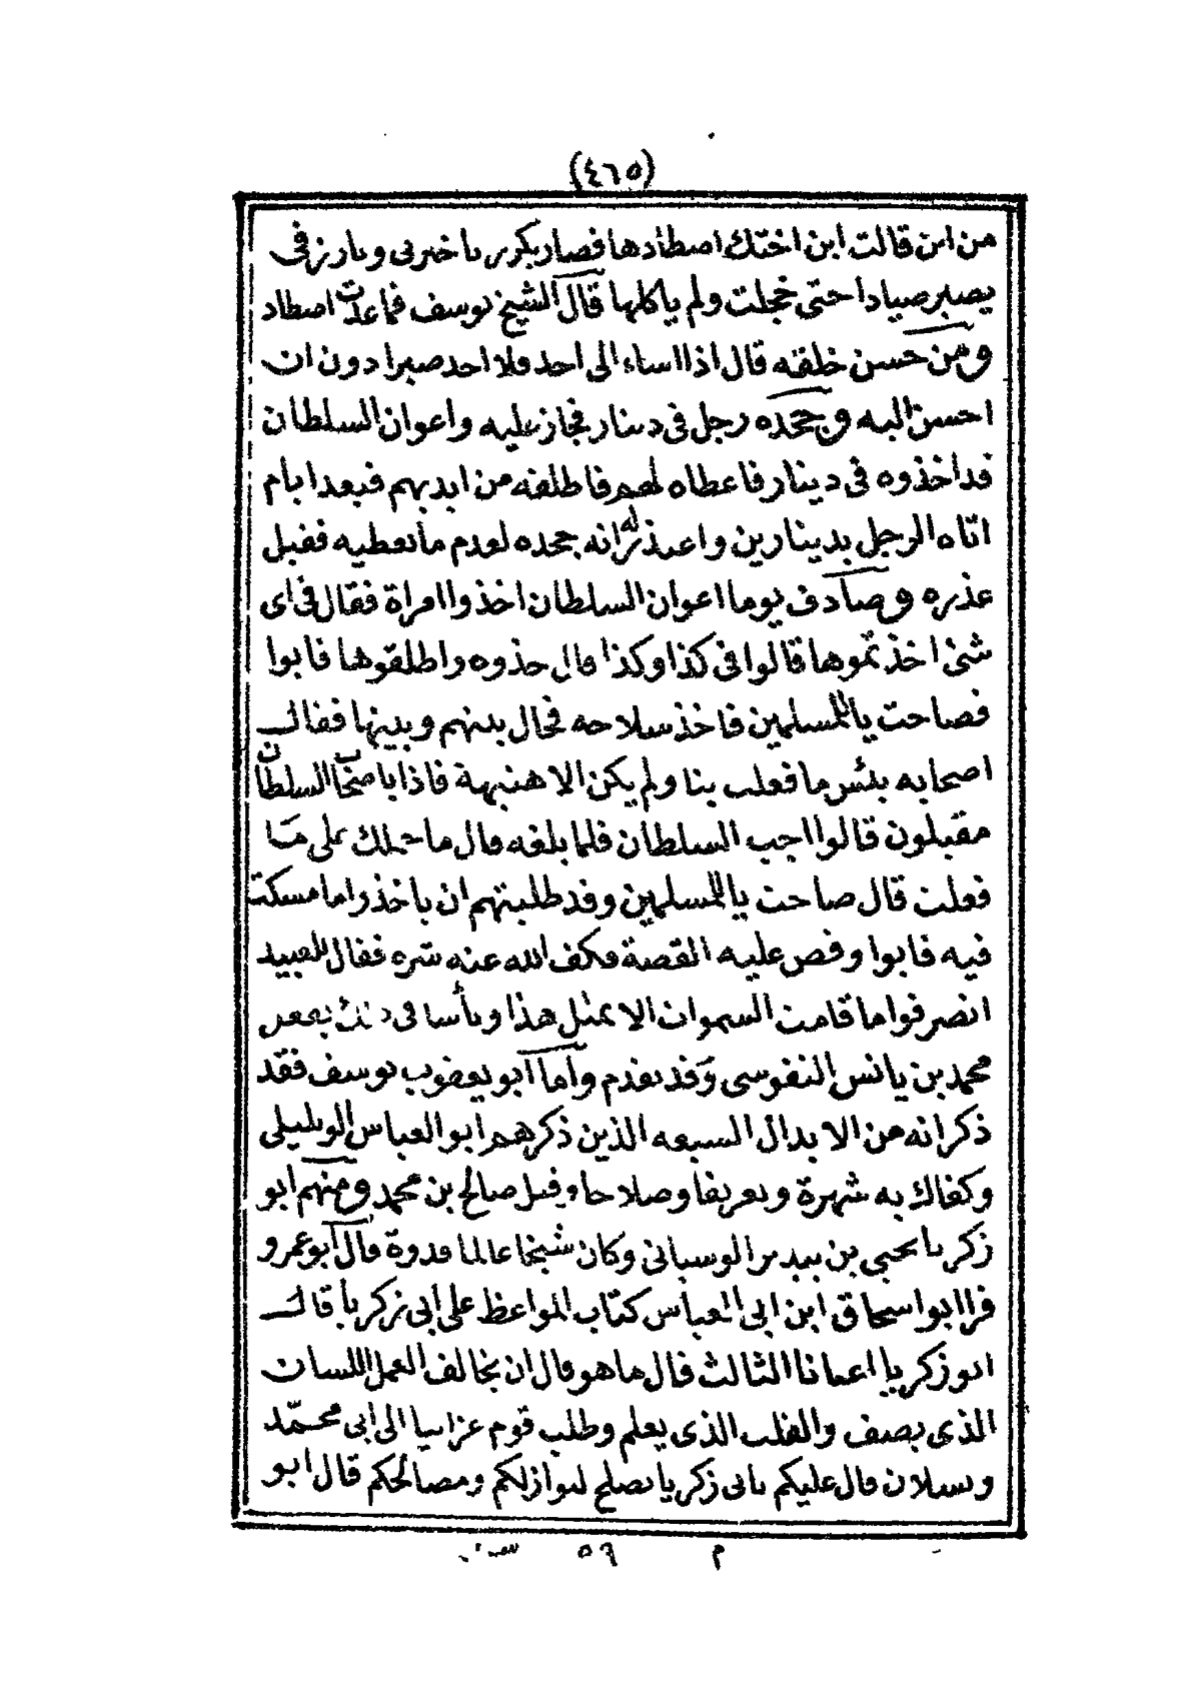 (٤٦٥)
من اين قالت ابن اختك اصطادها فصار يكرر يا خيرتي ويا رزقي
يصير صيادا حتى خجلت ولم ياكلها قال الشيخ يوسف فما عدت اصطاد
ومن حسن خلقه قال اذا اساء الى احد فلا احد صبرا دون ان
احسن اليه وجحده رجل في دينار فجاز عليه واعوان السلطان
قد اخذوه في دينار فاعطاه لهم فاطلقه من ايديهم فبعد ايام
اتاه الرجل بدينارين واعتذر له انه جحده لعدم ما يعطيه فقبل
عذره وصادف يوما اعوان السلطان اخذوا امراة فقال في اي
شئ اخذتموها قالوا في كذا وكذا قال خذوه واطلقوها فابوا
فصاحت يا للمسلمين فاخذ سلاحه فحال بينهم وبينها فقال
اصحابه بئس ما فعلت بنا ولم يكن الا هنيهة فاذا باصحاب السلطان
مقبلون قالوا اجب السلطان فلما بلغه قال ما حملك على ما
فعلت قال صاحت يا للمسلمين وقد طلبتهم ان ياخذوا ما مسكت
فيه فابوا وقص عليه القصة فكف الله عنه شره فقال للعبيد
انصرفوا ما قامت السموات الا بمثل هذا وتأسا في ذلك بجعفر
محمد بن يانس النفوسي وقد تقدم واما ابو يعقوب يوسف فقد
ذكر انه من الابدال السبعه الذين ذكرهم ابو العباس الويليلي
وكفاك به شهرة وتعريفا وصلاحا وقيل صالح بن محمد ومنهم ابو
زكريا يحيى بن بيدير الوسياني وكان شيخا عالما قدوة قال ابو عمرو
قرا ابو اسحاق ابن ابي العباس كتاب المواعظ على ابي زكريا قال
ابو زكريا اعمانا الثالث قال ما هو قال ان يخالف العمل اللسان
الذي يصف والقلب الذي يعلم وطلب قوم عزابيا الى ابي محمد
ويسلان قال عليكم بابي زكريا يصلح لنوازلكم ومصالحكم قال ابو
م ٥٩